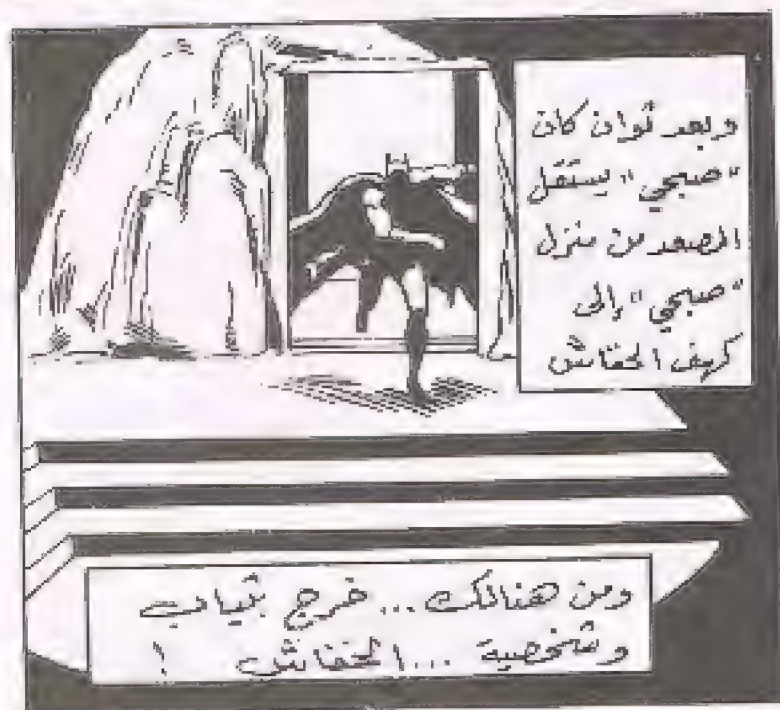 وبعد ثوان كان
"صبحي" يستقل
المصعد من منزل
"صبحي" إلى
كهف الخفاش
ومن هنالك... خرج بثياب
وشخصية... الخفاش !